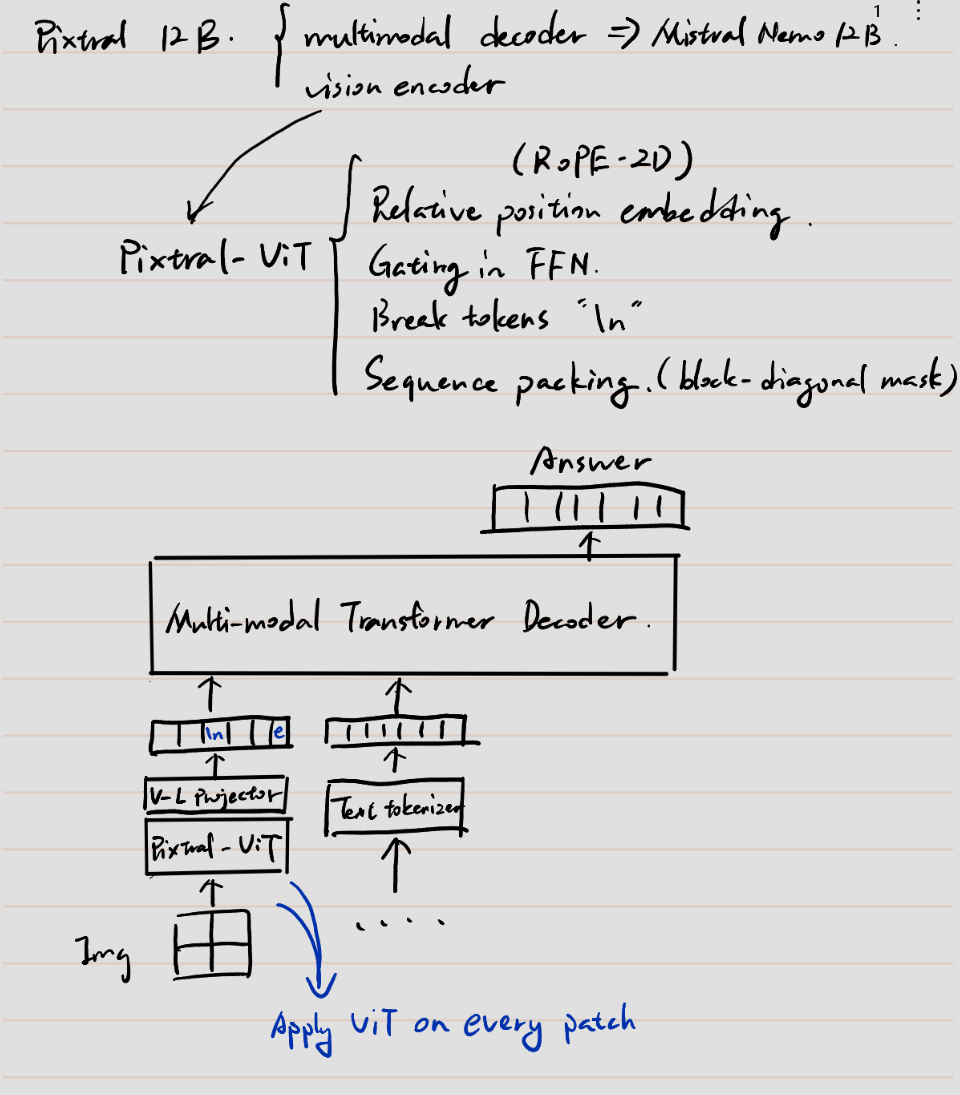 1
Pixtral 12B. { multimodal decoder => Mistral Nemo 12B.
vision encoder
(RoPE-2D)
Relative position embedding.
Pixtral-ViT { Gating in FFN.
Break tokens "\n"
Sequence packing. (block-diagonal mask)
Answer
Multi-modal Transformer Decoder.
\n e
V-L projector
Text tokenizer
Pixtral-ViT
. . . .
Img
Apply ViT on every patch